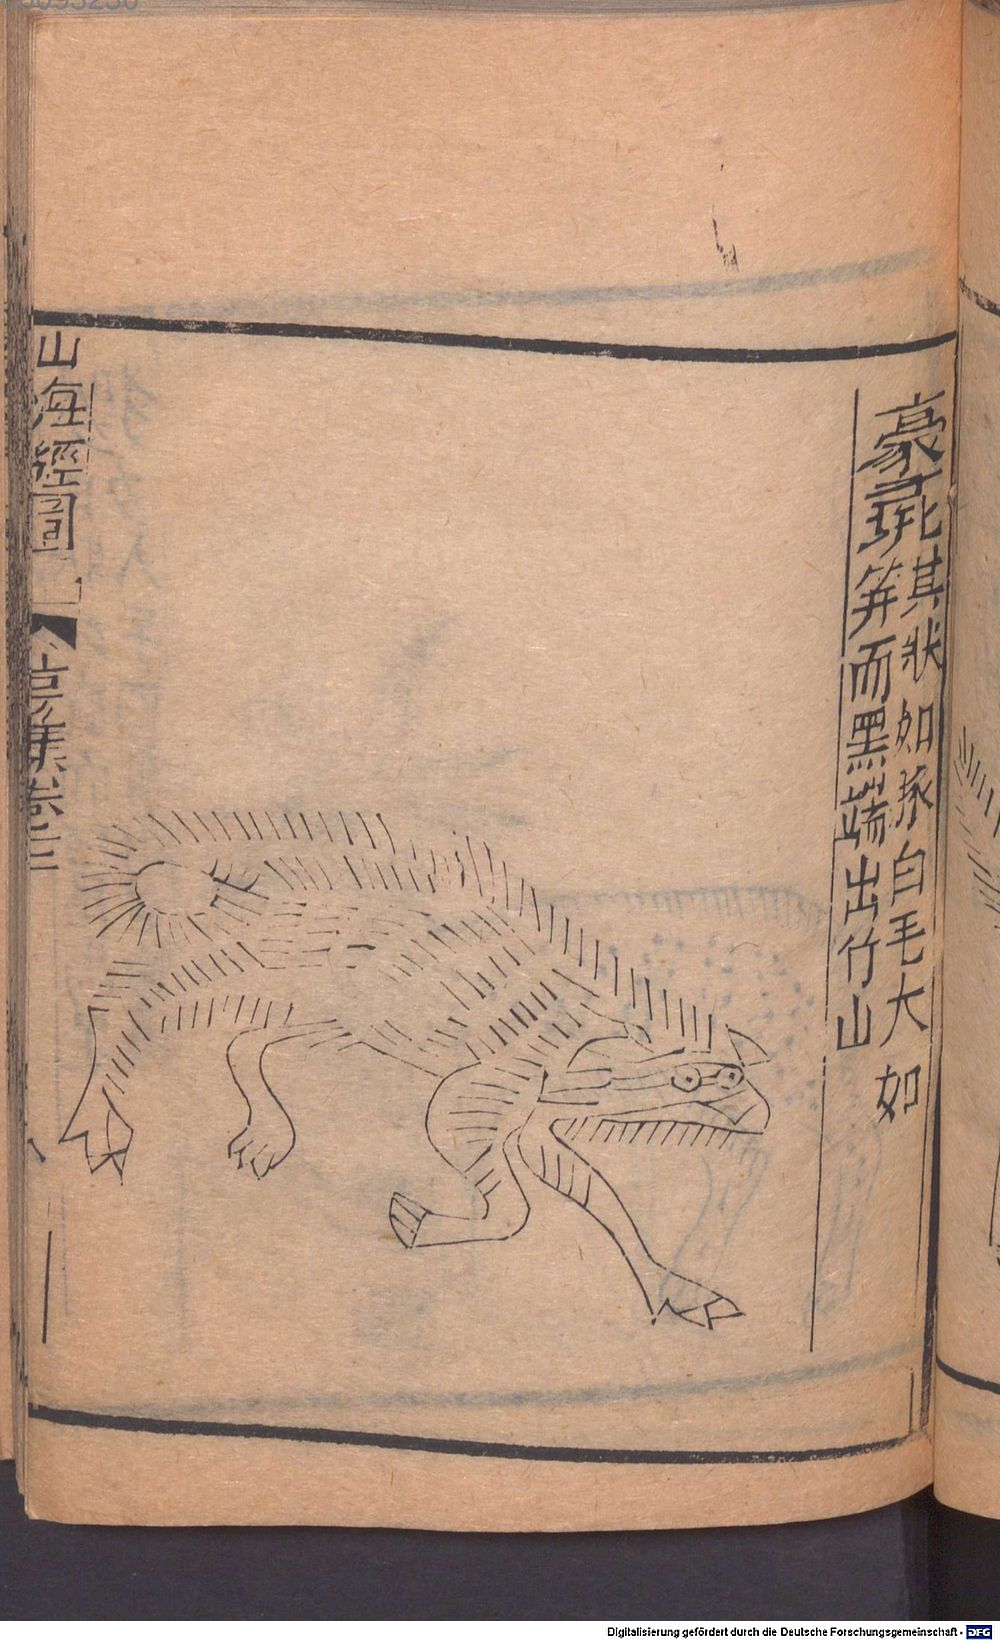 豪彘
其狀如豕白毛大如
笄而黑端出竹山
山海經圖
卷三
Digitalisierung gefördert durch die Deutsche Forschungsgemeinschaft - DFG